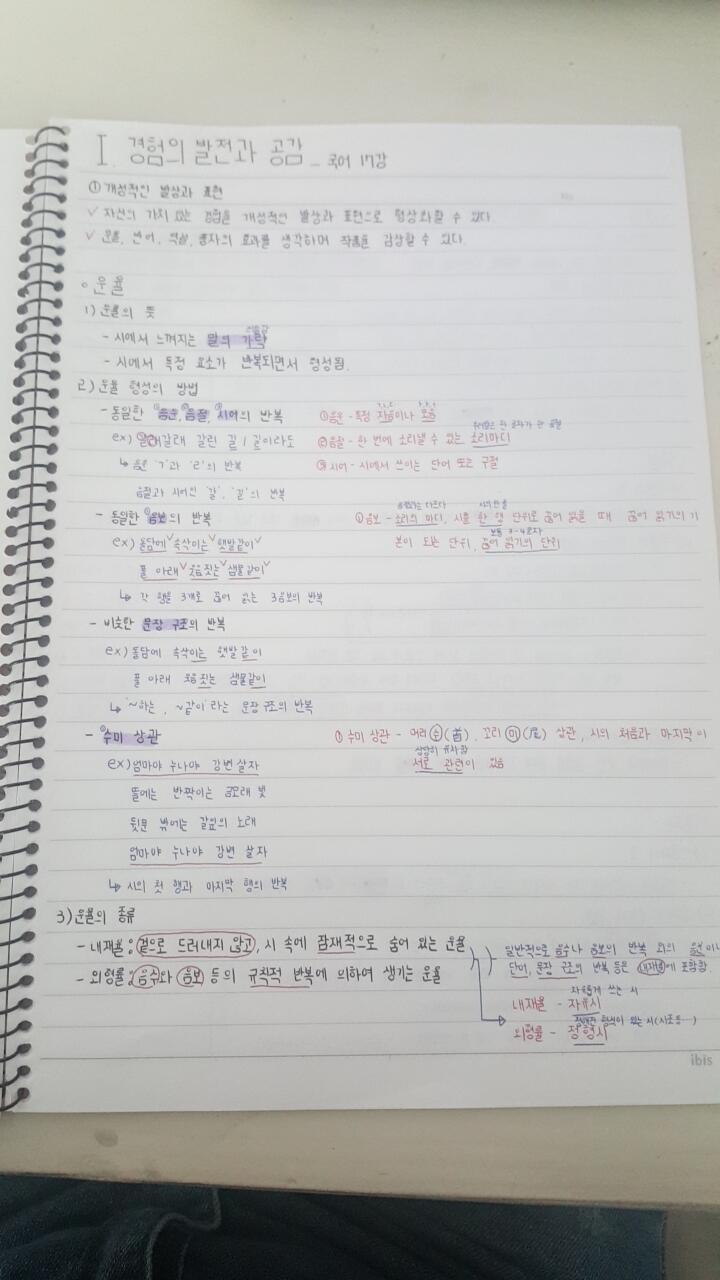 I. 경험의 발전과 공감 _ 국어 17강
① 개성적인 발상과 표현
✓ 자신의 가치 있는 경험을 개성적인 발상과 표현으로 형상화할 수 있다
✓ 운율, 반어, 역설, 풍자의 효과를 생각하며 작품을 감상할 수 있다.
○ 운율
1) 운율의 뜻
- 시에서 느껴지는 말의 가락
- 시에서 특정 요소가 반복되면서 형성됨.
2) 운율 형성의 방법
- 동일한 ①음운, ②음절, ③시어의 반복 ① 음운 - 특정 자음이나 모음
ex) 갈래갈래 갈린 길 / 길이라도 ② 음절 - 한 번에 소리낼 수 있는 소리마디
↳ 음운 'ㄱ'과 'ㄹ'의 반복 ③ 시어 - 시에서 쓰이는 단어 또는 구절
음절과 시어인 '갈', '길'의 반복
- 동일한 ①음보의 반복 ① 음보 - 소리의 마디, 시를 한 행 단위로 끊어 읽을 때 끊어 읽기의 기
ex) 돌담에✓속삭이는✓햇발같이✓ 본이 되는 단위, 끊어 읽기의 단위
보통 3-4글자
풀 아래✓웃음짓는✓샘물같이✓
↳ 각 행을 3개로 끊어 읽는 3음보의 반복
- 비슷한 문장 구조의 반복
ex) 돌담에 속삭이는 햇발같이
풀 아래 웃음짓는 샘물같이
↳ '~하는, ~같이'라는 문장 구조의 반복
- ①수미 상관 ① 수미 상관 - 머리 수(首), 꼬리 미(尾) 상관, 시의 처음과 마지막이
상당히 유사함
ex) 엄마야 누나야 강변 살자 서로 관련이 있음
뜰에는 반짝이는 금모래 빛
뒷문 밖에는 갈잎의 노래
엄마야 누나야 강변 살자
↳ 시의 첫 행과 마지막 행의 반복
3) 운율의 종류
- 내재율 : 겉으로 드러내지 않고, 시 속에 잠재적으로 숨어 있는 운율
- 외형률 : 음수와 음보 등의 규칙적 반복에 의하여 생기는 운율
일반적으로 음수나 음보의 반복 외의
단어, 문장 구조의 반복 등은 내재율에 포함함.
자유롭게 쓰는 시
내재율 - 자유시
형식이 있는 시(시조 등…)
외형률 - 정형시
ibis